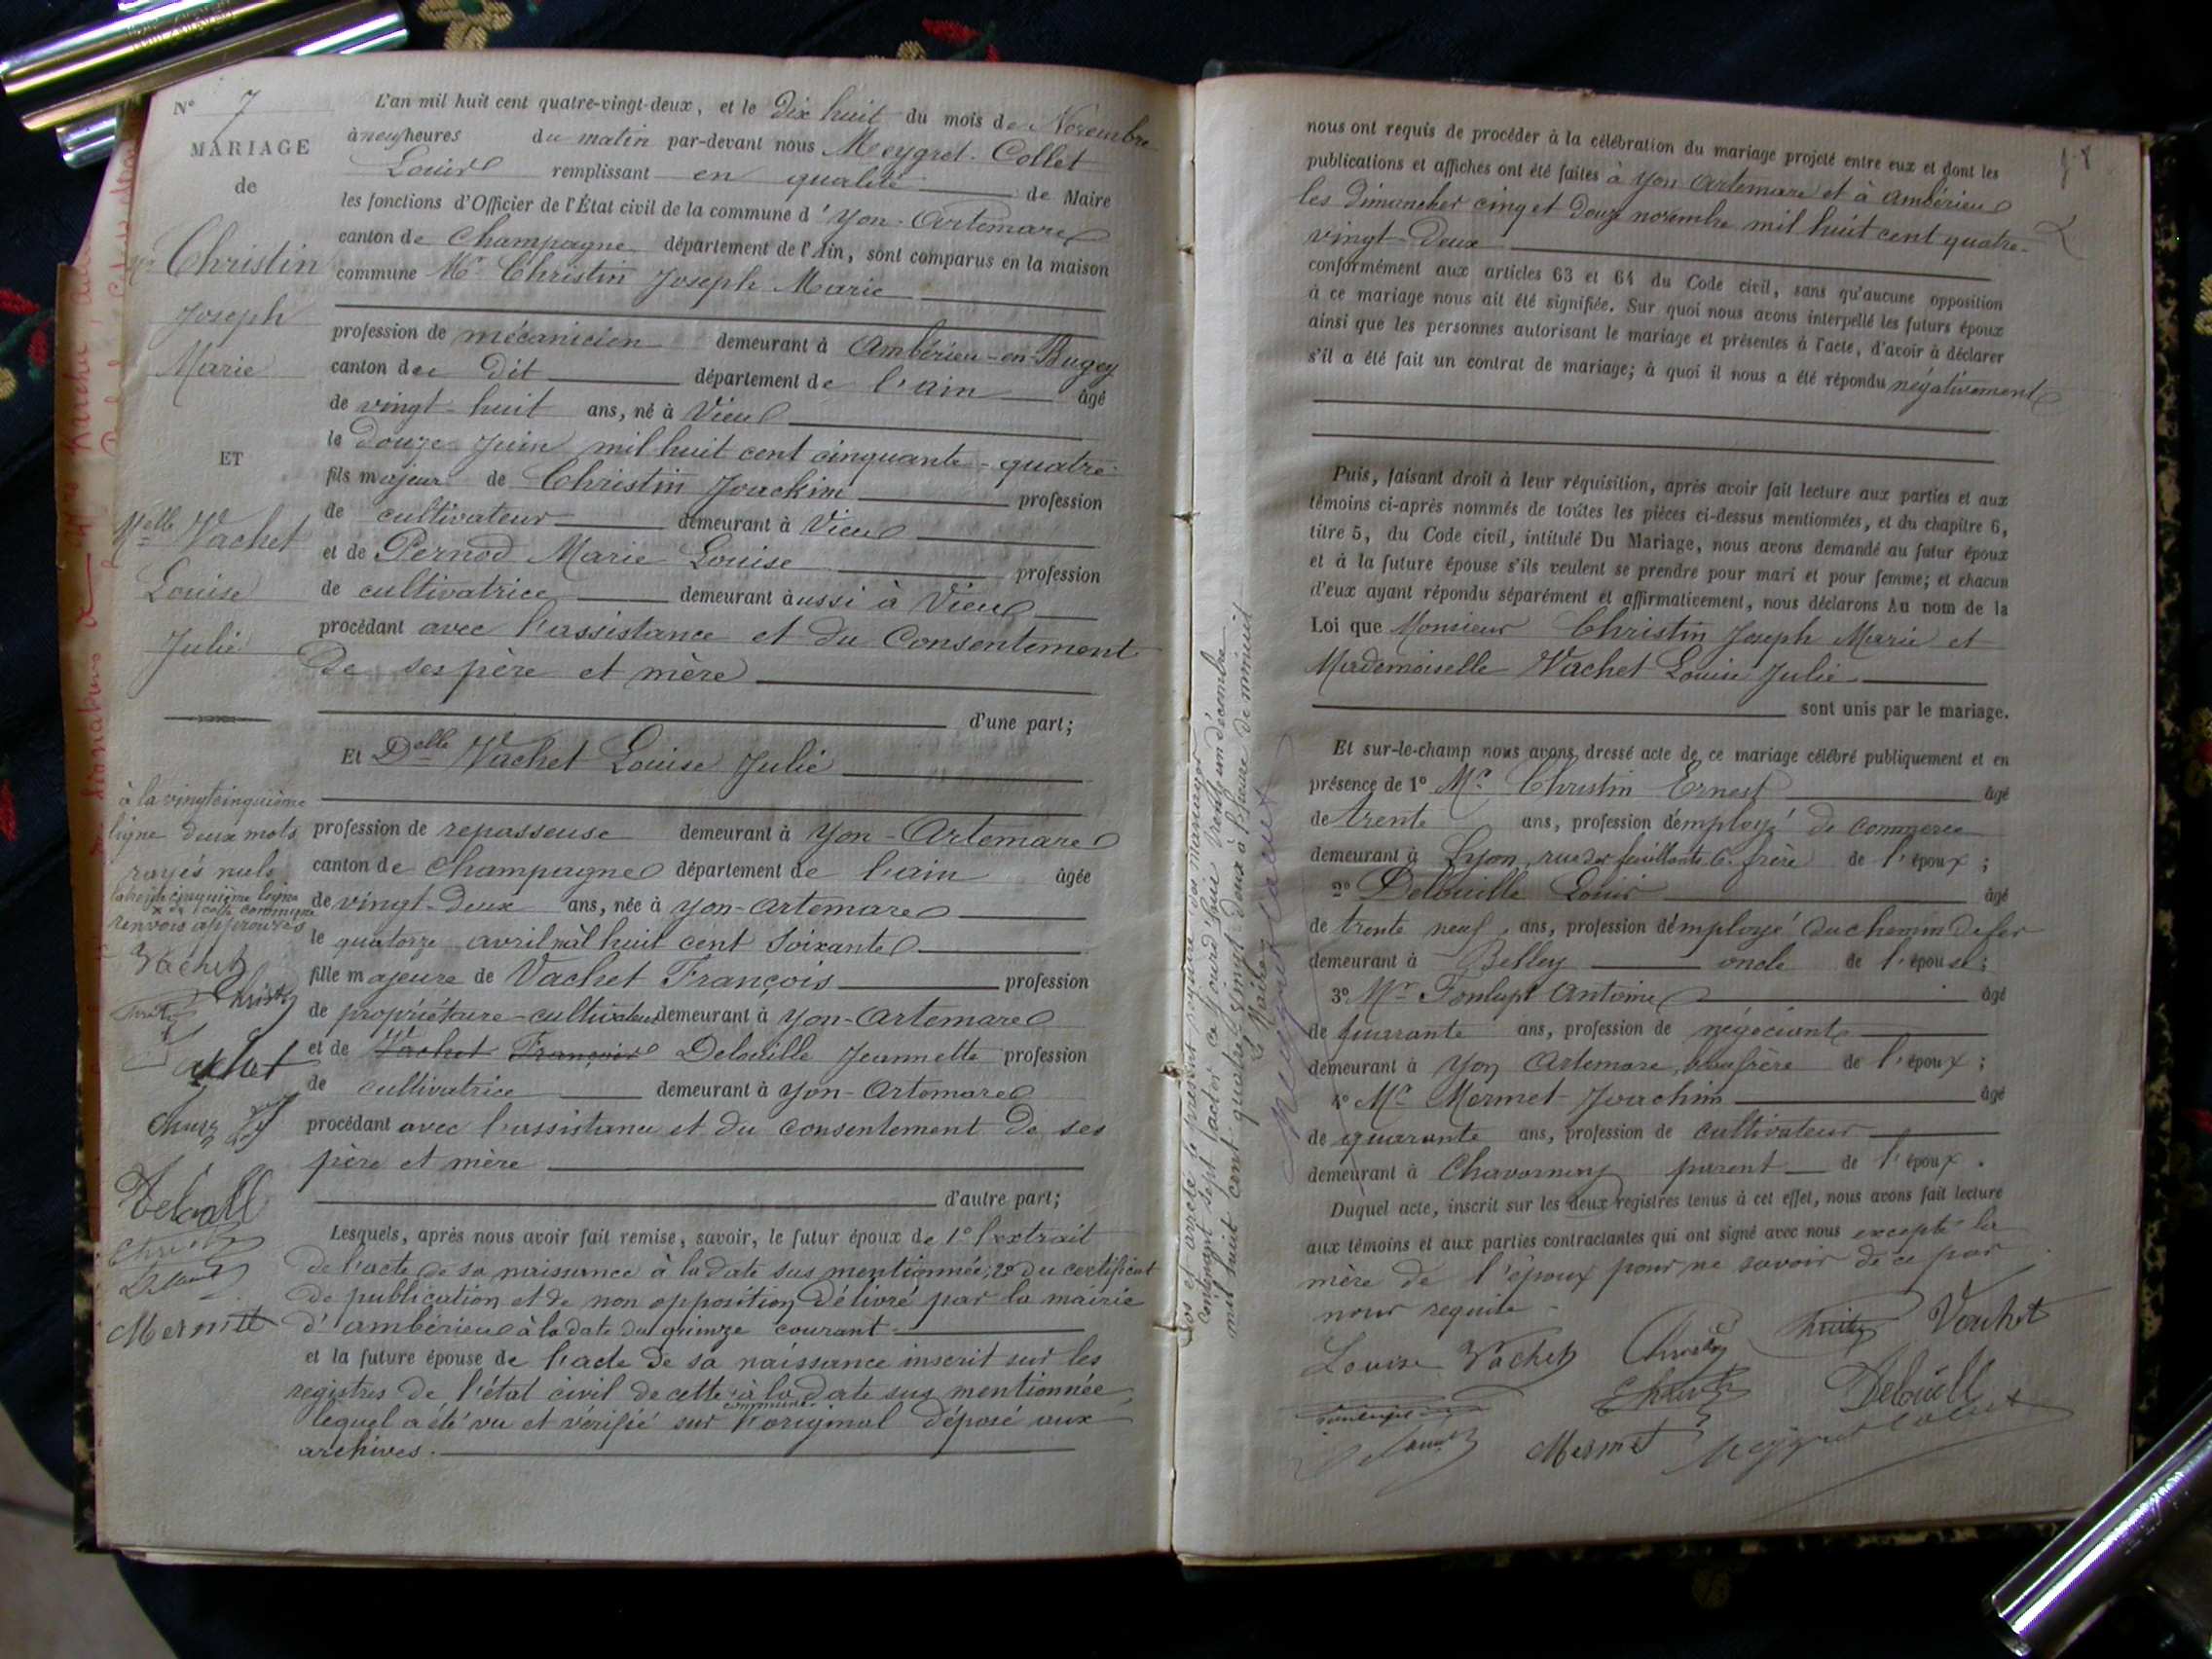 N° 7
MARIAGE
de
Christin
Joseph
Marie
ET
Melle Vachet
Louise
Julie
à la vingtcinquième
ligne deux mots
rayés nuls
renvois approuvés
Vachet
Vachet
Delouille
Mermet
L'an mil huit cent quatre-vingt-deux, et le dix huit du mois de Novembre
à neuf heures du matin par-devant nous Meygret-Collet
Louis remplissant en qualité de Maire
les fonctions d'Officier de l'État civil de la commune d'Yon-Artemare
canton de Champagne département de l'Ain, sont comparus en la maison
commune Mr Christin Joseph Marie
profession de mécanicien demeurant à Ambérieu-en-Bugey
canton du dit département de l'ain âgé
de vingt-huit ans, né à Vieu
le douze Juin mil huit cent cinquante-quatre
fils majeur de Christin Joachim profession
de cultivateur demeurant à Vieu
et de Pernod Marie Louise profession
de cultivatrice demeurant aussi à Vieu
procédant avec l'assistance et du Consentement
De ses père et mère
d'une part;
Et Delle Vachet Louise Julie
profession de repasseuse demeurant à Yon-Artemare
canton de Champagne département de l'ain âgée
de vingt-deux ans, née à Yon-Artemare
le quatorze avril mil huit cent soixante
fille majeure de Vachet François profession
de propriétaire-cultivateur demeurant à Yon-Artemare
et de Vachet François Delouille Jeannette profession
de cultivatrice demeurant à Yon-Artemare
procédant avec l'assistance et du consentement de ses
père et mère
d'autre part;
Lesquels, après nous avoir fait remise, savoir, le futur époux de 1° l'extrait
de l'acte de sa naissance à la date sus mentionnée; 2° du certificat
de publication et de non opposition délivré par la mairie
d'ambérieu à la date du quinze courant
et la future épouse de l'acte de sa naissance inscrit sur les
registres de l'état civil de cette commune à la date sus mentionnée,
lequel a été vu et vérifié sur l'original déposé aux
archives.
Clos et arrêté le présent registre des mariages
contenant sept actes ce jourd'hui trente un décembre
mil huit cent quatre vingt deux à l'heure de minuit
Le Maire
nous ont requis de procéder à la célébration du mariage projeté entre eux et dont les
publications et affiches ont été faites à Yon Artemare et à Ambérieu
les dimanches cinq et douze novembre mil huit cent quatre-
vingt-deux
conformément aux articles 63 et 64 du Code civil, sans qu'aucune opposition
à ce mariage nous ait été signifiée. Sur quoi nous avons interpellé les futurs époux
ainsi que les personnes autorisant le mariage et présentes à l'acte, d'avoir à déclarer
s'il a été fait un contrat de mariage; à quoi il nous a été répondu négativement
Puis, faisant droit à leur réquisition, après avoir fait lecture aux parties et aux
témoins ci-après nommés de toutes les pièces ci-dessus mentionnées, et du chapitre 6,
titre 5, du Code civil, intitulé Du Mariage, nous avons demandé au futur époux
et à la future épouse s'ils veulent se prendre pour mari et pour femme; et chacun
d'eux ayant répondu séparément et affirmativement, nous déclarons Au nom de la
Loi que Monsieur Christin Joseph Marie et
Mademoiselle Vachet Louise Julie
sont unis par le mariage.
Et sur-le-champ nous avons dressé acte de ce mariage célébré publiquement et en
présence de 1° Mr Christin Ernest âgé
de trente ans, profession d'employé de commerce
demeurant à Lyon, rue des feuillants 6. frère de l'époux;
2° Delouille Louis âgé
de trente neuf ans, profession d'employé du chemin de fer
demeurant à Belley oncle de l'épouse;
3° Mr Fonlupt Antoine âgé
de quarante ans, profession de négociant
demeurant à Yon Artemare, beau frère de l'époux;
4° Mr Mermet Joachim âgé
de quarante ans, profession de cultivateur
demeurant à Chavornay parent de l'époux.
Duquel acte, inscrit sur les deux registres tenus à cet effet, nous avons fait lecture
aux témoins et aux parties contractantes qui ont signé avec nous excepté la
mère de l'époux pour ne savoir de ce par
nous requise
Louise Vachet Christin Vachet
Delouille
Mermet Meygret Collet